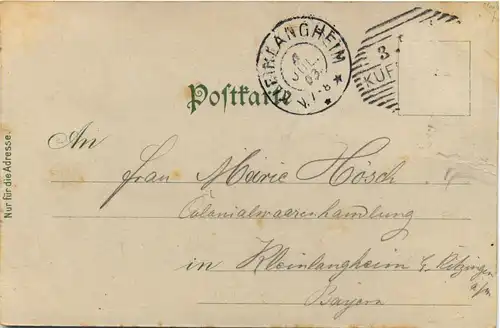 KLEINLANGHEIM
4
JUL.
03.
V.7-8
3
KUF
Postkarte
An
Frau Marie Hösch
Colonialwaarenhandlung
in Kleinlangheim b. Kitzingen
a/m
Bayern
Nur für die Adresse.